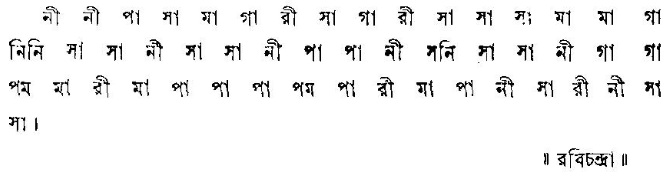 নী নী পা সা মা গা রী সা গা রী সা সা সা মা মা গা
নিনি সা সা নী সা সা নী পা পা নী সনি সা সা নী গা গা
পম মা রী মা পা পা পা পম পা রী মা পা নী সা রী নী সা
সা।
॥ রবিচন্দ্রা ॥